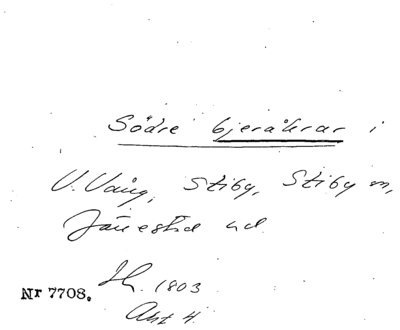 Södre bjeråkrar i
V. Vång, Stiby, Stiby m,
Järrestad hd
Nr 7708. Sk. 1803
Akt 4